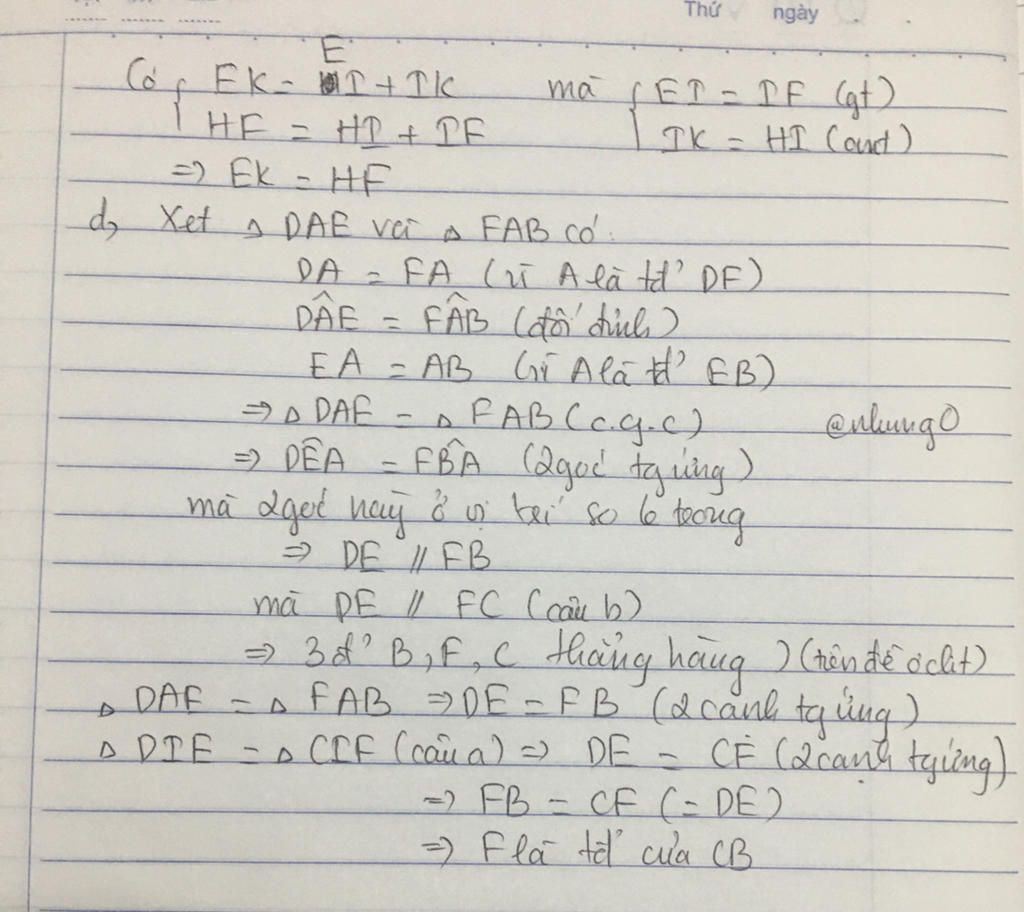 Thứ ngày
E
Có { EK = HI + IK mà { EI = IF (gt)
HF = HI + IF IK = HI (cmt)
=> EK = HF
d, Xet △ DAE và △ FAB có:
DA = FA (vì A là tđ' DF)
DÂE = FÂB (đối đỉnh)
EA = AB (vì A là tđ' EB)
=> △ DAE = △ FAB (c.g.c) @nhung0
=> DÊA = FB̂A (2 goc tg ứng)
mà 2 goc này ở vị trí so le trong
=> DE // FB
mà DE // FC (câu b)
=> 3 đ' B, F, C thẳng hàng ) (tiên đề ơclit)
△ DAE = △ FAB => DE = FB (2 canh tg ứng)
△ DIE = △ CIF (câu a) => DE = CF (2 canh tg ứng)
=> FB = CF (= DE)
=> F là tđ' của CB